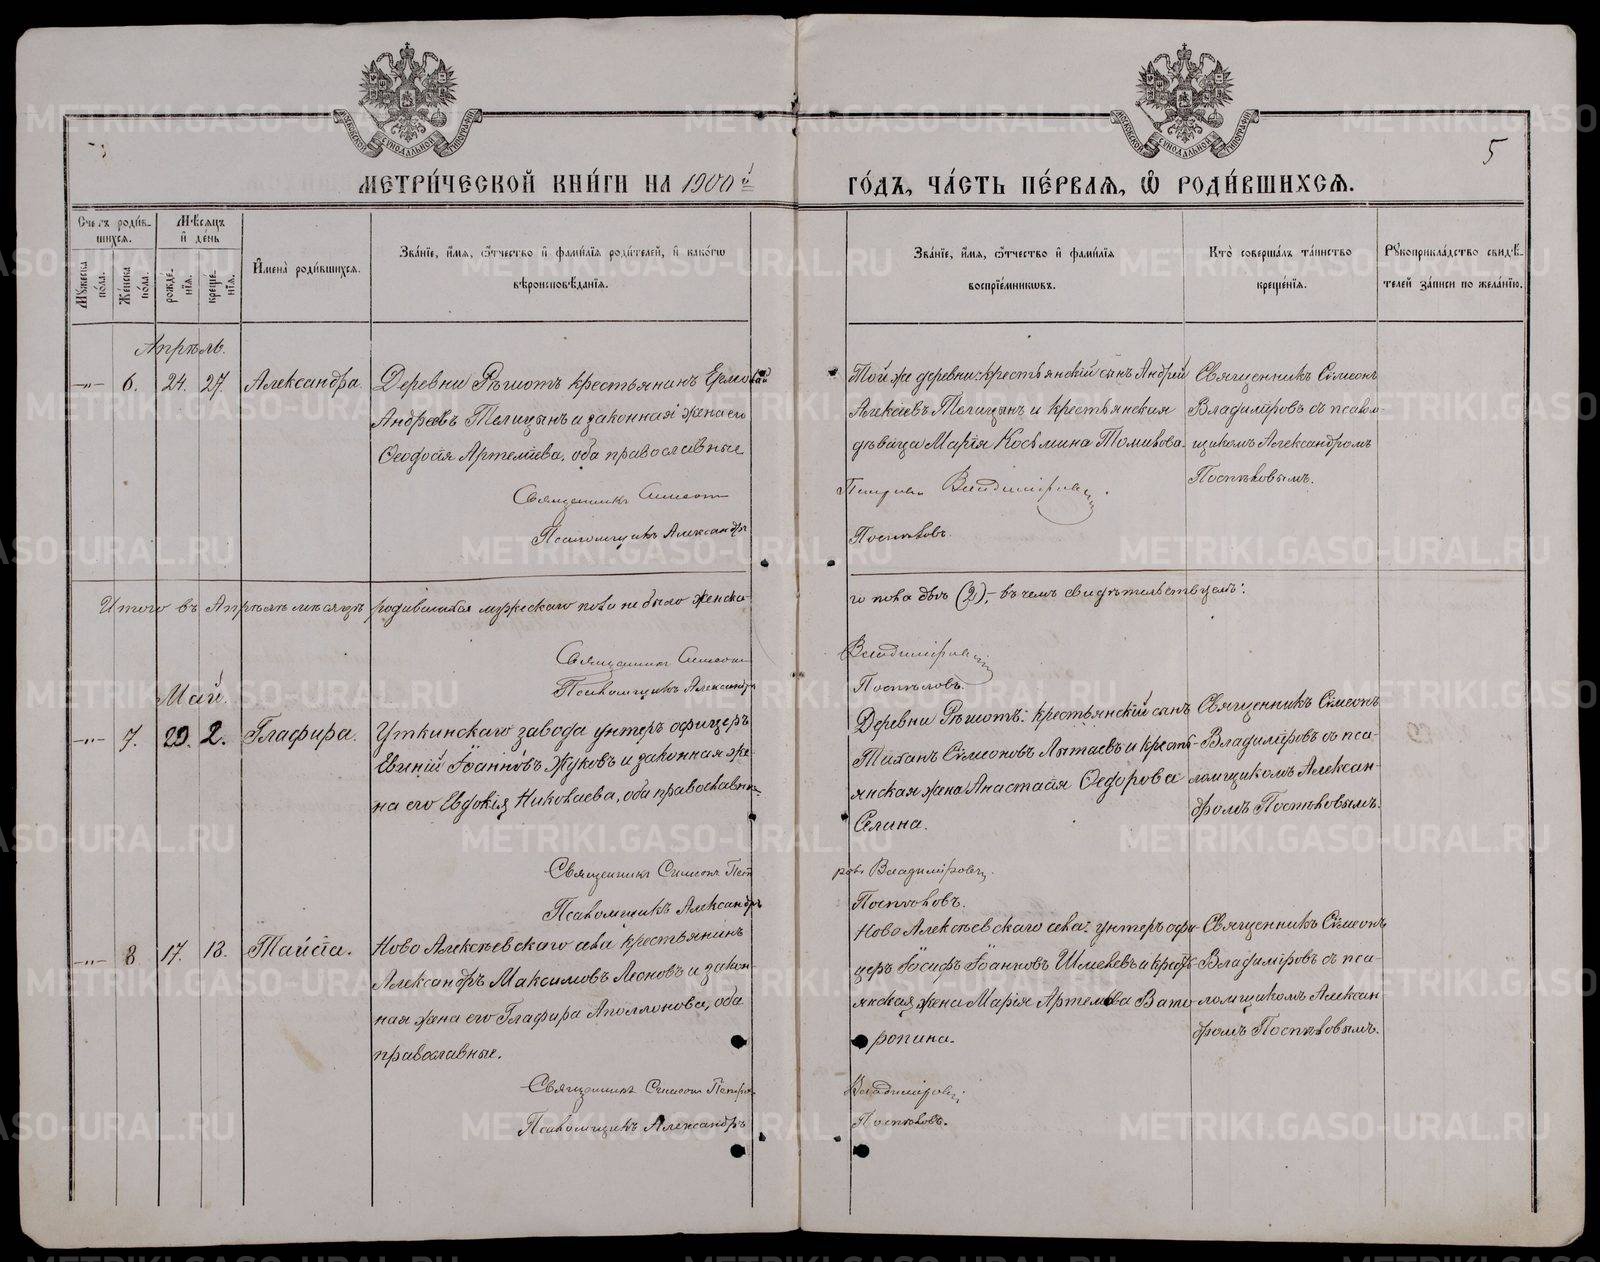 5
МЕТРИ́ЧЕСКОЙ КНИ́ГИ НА 1900й
ГО́ДЪ, ЧА́СТЬ ПЕ́РВАЯ, Ѡ҆ РОДИ́ВШИХСѦ.
Счетъ роди́в-
шихся.
Мꙋжеска по́ла.
Же́нска по́ла.
Мѣ́сяцъ
и҆ де́нь
рожде́нїя.
креще́нїя.
И҆мена̀ роди́вшихся.
Зва́нїе, и҆́мя, ѻ҆́тчество и҆ фами́лїя роди́телей, и҆ како́гѡ
вѣроисповѣ́данїя.
Зва́нїе, и҆́мя, ѻ҆́тчество и҆ фами́лїя
воспрїе́мниковъ.
Кто̀ соверша́лъ та́инство
креще́нїя.
Рꙋкоприкла́дство свидѣ́-
телей за́писи по жела́нїю.
Апрѣль.
—„— 6. 24. 27. Александра.
Деревни Рѣшотъ крестьянинъ Ермолай
Андреевъ Телицынъ и законная жена его
Ѳеодосія Артеміева, оба православные
Священникъ Симеонъ
Псаломщикъ Александръ
Той же деревни: крестьянскій сынъ Андрей
Алексѣевъ Телицынъ и крестьянская
дѣвица Марія Косьмина Томилова.
Петровъ Владиміровъ.
Поспѣловъ.
Священникъ Сѵмеонъ
Владиміровъ съ псалом-
щикомъ Александромъ
Поспѣловымъ.
Итого въ Апрѣлѣ мѣсяцѣ родившихся мужескаго пола не было женска-
го пола двѣ (2), въ чемъ свидѣтельствуемъ:
Священникъ Симеонъ
Псаломщикъ Александръ
Владиміровъ
Поспѣловъ.
Май.
—„— 7. 29. 2. Глафира.
Уткинскаго завода унтеръ офицеръ
Евѳимій Іоанновъ Жуковъ и законная же-
на его Евдокія Николаева, оба православные
Священникъ Симеонъ Пет
Псаломщикъ Александръ
Деревни Рѣшотъ: крестьянскій сынъ
Сѵмеоновъ и кресть-
янская жена Анастасія Ѳедорова
Селина.
ровъ Владиміровъ.
Поспѣловъ.
Священникъ Сѵмеонъ
Владиміровъ съ пса-
ломщикомъ Алексан-
дромъ Поспѣловымъ.
—„— 8 17. 18. Таисія.
Ново Алексѣевскаго села крестьянинъ
Александръ Максимовъ Леоновъ и закон-
ная жена его Глафира Аполлонова, оба
православные.
Священникъ Симеонъ Петров
Псаломщикъ Александръ
Ново Алексѣевскаго села: унтеръ офи-
церъ Іосифъ Іоанновъ Шмелевъ и кресть-
янская жена Марія Артемьева Вато-
ропина.
Владиміровъ
Поспѣловъ.
Священникъ Сѵмеонъ
Владиміровъ съ пса-
ломщикомъ Алексан
дромъ Поспѣловымъ.
METRIKI.GASO-URAL.RU